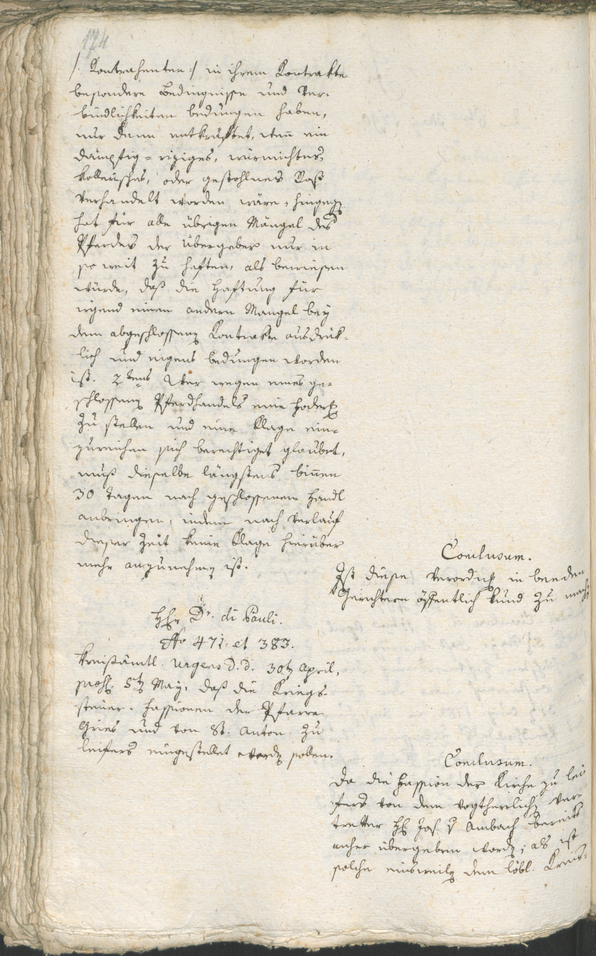 174
/: Kontrahenten :/ in ihrem Kontrakte
besondere Bedingnisse und Ver-
bindlichkeiten bedungen haben,
nur dann entkräftet, wenn ein
dämpfig-
oder gestohlenes Roß
verhandelt worden wäre, hingegen
hat für alle übrigen Mängel des
Pferdes der Übergeber nur in
so weit zu haften, als bewiesen
würde, daß die Haftung für
irgend einen andern Mangel bey
dem abgeschlossenen Kontrakte ausdrük-
lich und eigens bedungen worden
ist. 2tens Wer wegen eines ge-
schlossenen Pferdhandels eine
zu stellen und eine Klage ein-
zureichen sich berechtiget glaubet,
muß dieselbe längstens binnen
30 Tagen nach geschlossenem Handl
anbringen, indem nach Verlauf
dieser Zeit keine Klage hierüber
mehr anzunehmen ist.
Conclusum.
Ist diese Verordnung in beeden
Gerichtern öffentlich kund zu machen
Hhr Dr. di Pauli.
No 471. et 383.
Kreisämtl. Urgens d. d. 30ten April,
5ten May, daß die Kriegs-
steuer-Fassionen der Pfarre
Gries und von St. Anton zu
Leifers eingestellet werden sollen.
Conclusum.
Da die Fassion der Kirche zu Lei-
fers von dem vogtherrlichen Ver-
tretter H. Jos. v Ambach bereits
anher übergeben worden; als ist
solche einsweilen dem löbl. Kreis-